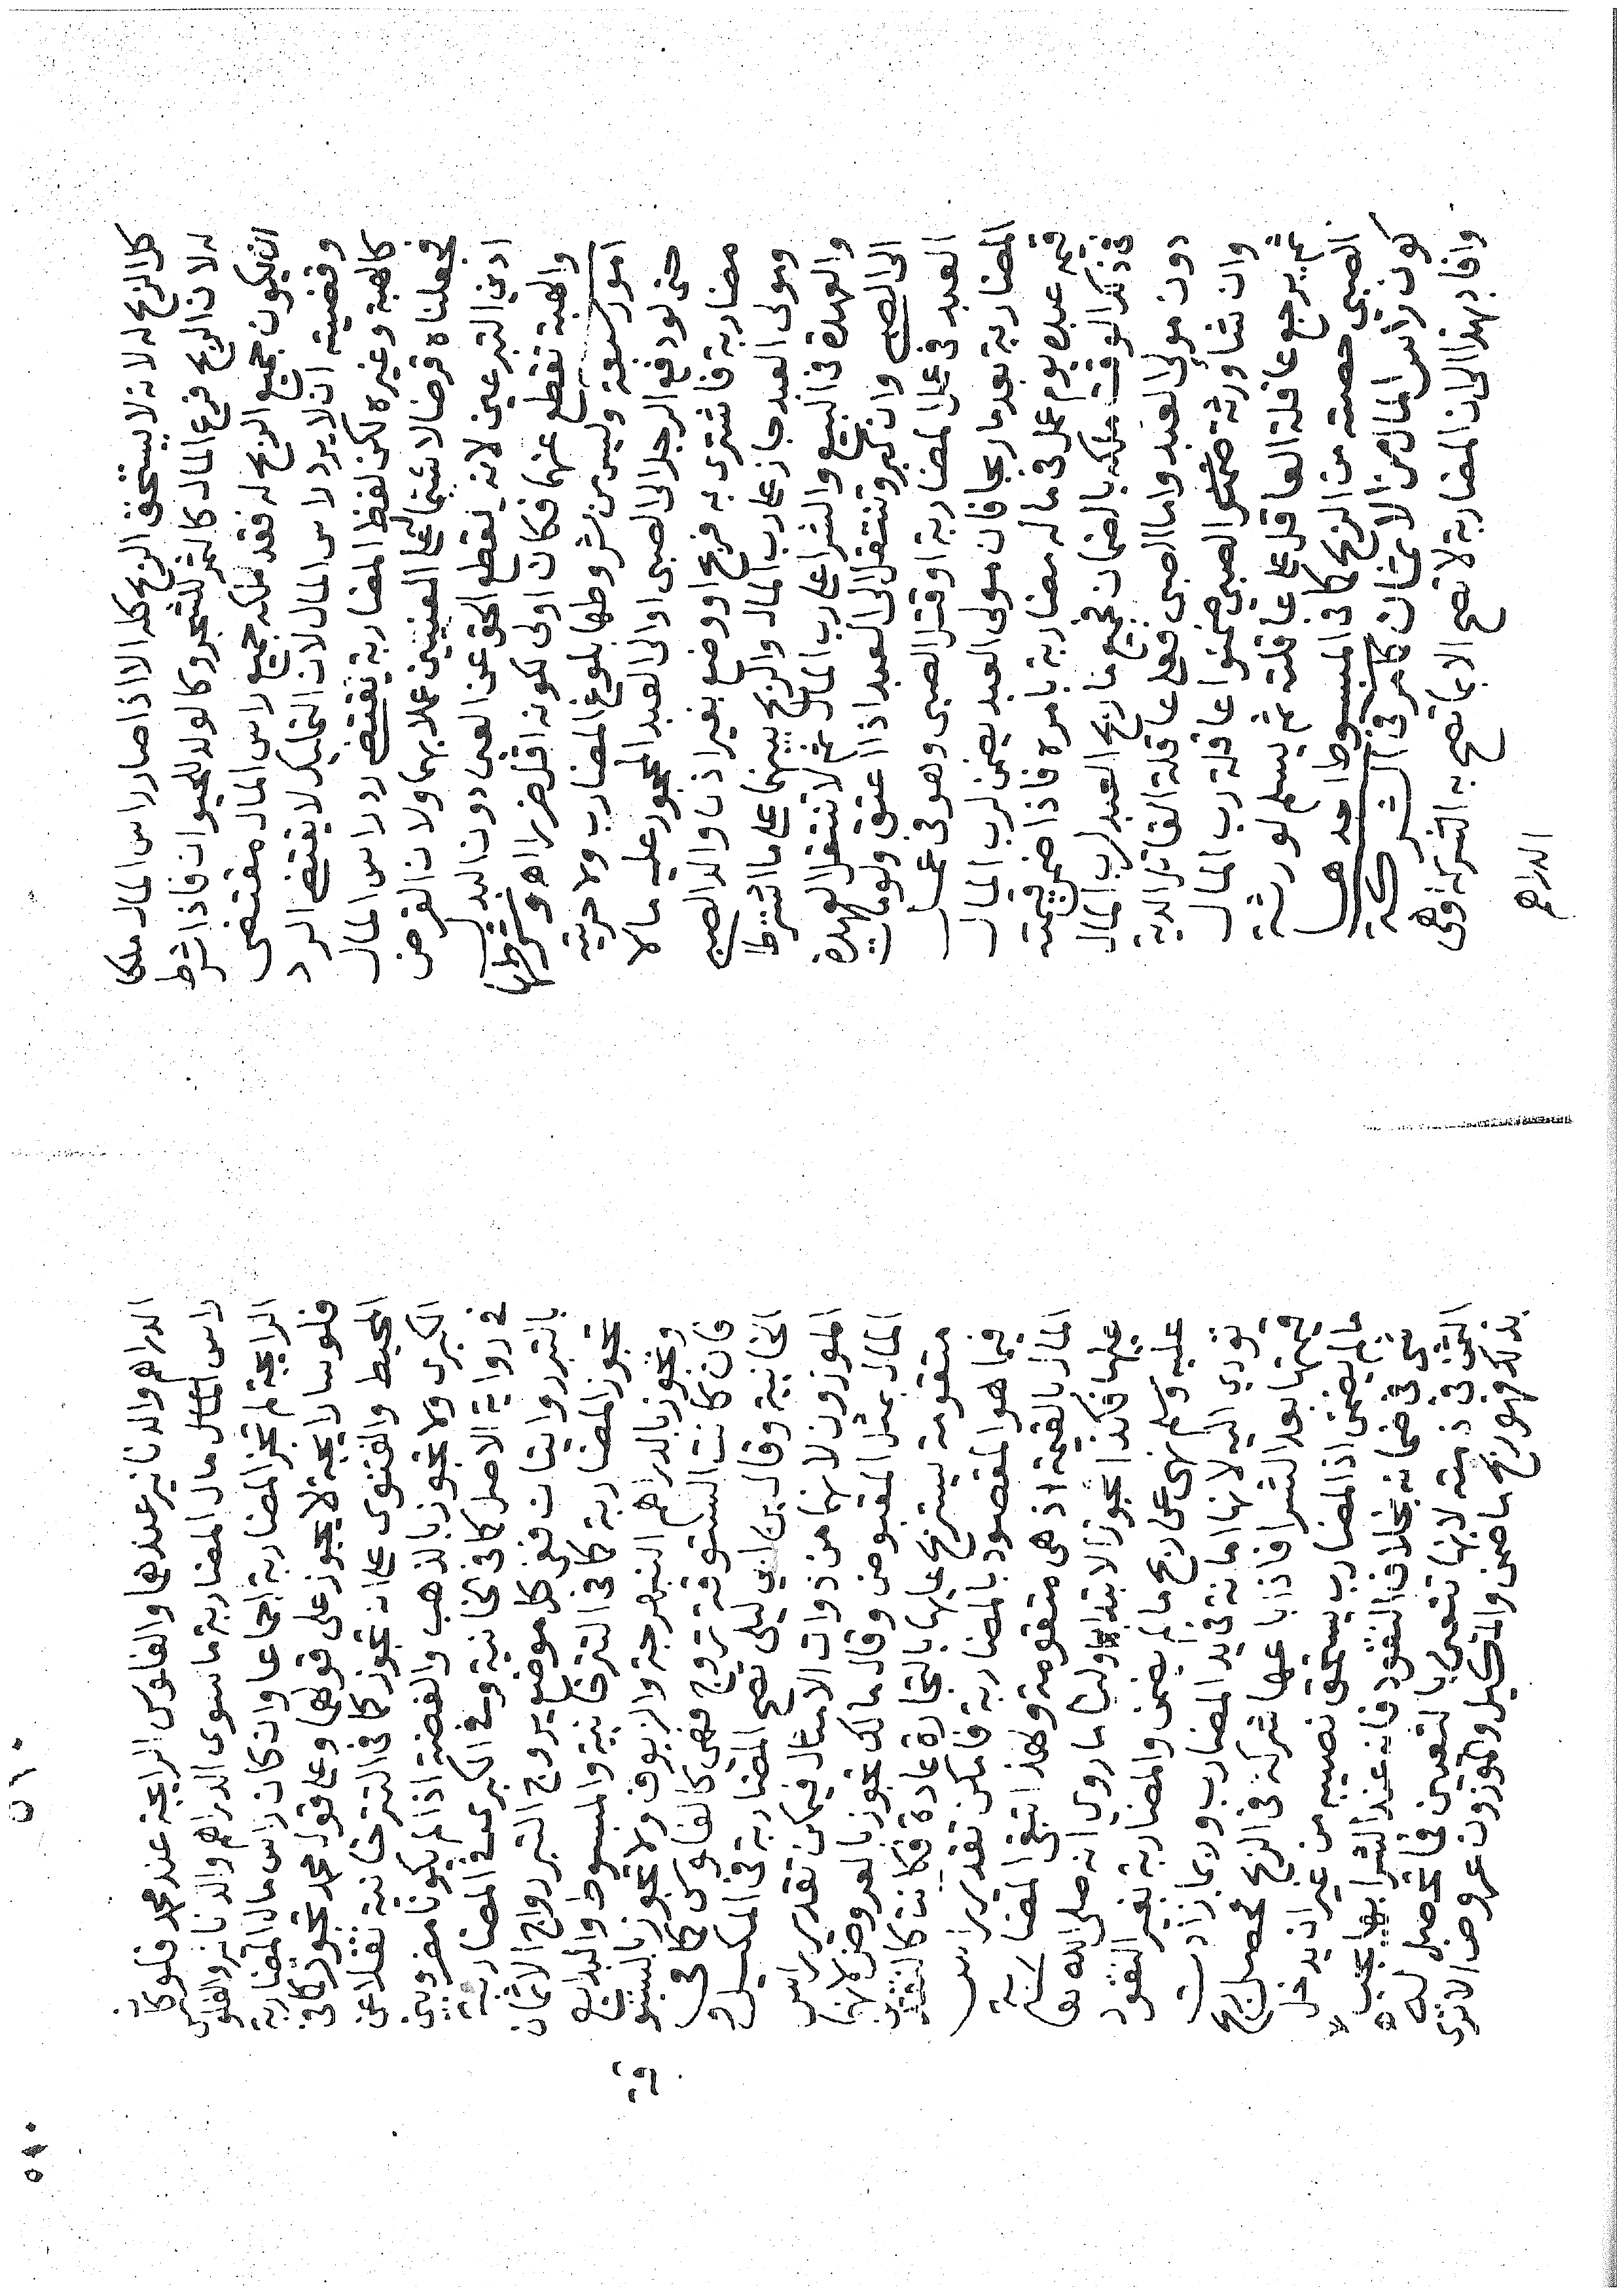 كل الربح له لانه لا يستحق الربح كله الا اذا صار راس المال ملكا
له لان الربح فرع المال كالثمر للشجر وكالولد للحيوان فاذا شرط
ان يكون جميع الربح له فقد ملكه جميع راس المال مقتضى
وقضيته ان لا يرد راس المال لان التمليك لا يقتضى الرد
كالهبة وغيره لكن لفظ المضاربة يقتضى رد راس المال
فجعلناه قرضا لاشتماله على المعنيين عملا بهما ولان القرض
ادنى التبرعين لانه يقطع الحق عن العين دون البدل
والهبة تقطع عنهما فكان اولى لكونه اقل ضررا اه وشرطها
امور سبعة وليس من شروطها بلوغ المضارب ولا حريته
حتى لو دفع الرجل الى الصبى او الى العبد المحجور عليه مالا
مضاربة فاشترى به فربح او وضع بغير اذن والد الصبى
ومولى العبد جاز على رب المال والربح بينهما على ما اشترطا
والعهدة فى البيع والشرا على رب المال ثم لا تنتقل العهدة
الى الصبى وان كبر وتنتقل الى العبد اذا عتق ولو مات
العبد فى عمل المضاربة او قتل الصبى وهو فى عمل
المضاربة بعد ما ربحا فان مولى العبد يضمن لرب المال
قيمة عبده يوم عمل فى ماله مضاربة بامره فاذا ضمن قيمته
فى ذلك الوقت ملكه بالضمان فجميع ما ربح العبد لرب المال
دون مولى العبد واما الصبى فعلى عاقلة القاتل الدية
وان شا ورثة الصبى ضمنوا عاقلة رب المال
ثم يرجع عاقلة العاقل على عاقلته ثم يسلم لورثة
الصبى حصته من الربح كما فى المبسوط احدها
كون راس المال من الاثمان كما مر فى الشركة
وافاد بهذا الى ان المضاربة لا تصح الا بما تصح به الشركة وهى
الدراهم
٥١٠
الدراهم والدنانير عندهما والفلوس الرايجة عند محمد فلو كان
راس المال مال المضاربة ما سوى الدراهم والدنانير والفلوس
الرايجة لم تجز المضاربة اجماعا وان كان راس مال المضاربة
فلوسا رايجة لا يجوز على قولهما وعلى قول محمد تجوز كما فى
المحيط والفتوى على انه تجوز كما فى التترخانية نقلا عن
الكبرى ولا تجوز بالذهب والفضة اذا لم يكونا مضروبين
فى رواية الاصل كما فى الخانية وفى الكبرى فى المضاربة
بالتبر روايتان ففى كل موضع يروج التبر رواج الاثمان
تجوز المضاربة كما فى التترخانية والمبسوط والبدايع
وتجوز بالدراهم النبهرجة والزيوف ولا تجوز بالستو
قة
فان كانت الستوقة تروج فهى كالفلوس كما فى
الخانية وقال بن ابي ليلى تصح المضاربة فى المكيل و
الموزون لانهما من ذوات الامثال فيمكن تقدير راس
المال بمثل المقبوض وقال مالك تجوز بالعروض لانها
متقومة يستربح عليها بالتجارة عادة فكانت كالنقدين
فيما هو المقصود بالمضاربة فامكن تقدير راس
المال بالقيمة اذ هى متقومة ولهذا تبقى المضاربة
عليها فكذا يجوز الابتدا ولنا ما روى انه صلى الله تعا
عليه وسلم نهى عن ربح ما لم يضمن والمضاربة بغير النقود
تودي اليه لانها امانة فى يد المضارب وربما زادت
قيمتها بعد الشرا فاذا باعها شركه فى الربح فحصل ربح
ما لم يضمن اذ المضارب يستحق نصيبه من غير ان يدخل
شى فى ضمانه بخلاف النقود فانه عند الشرا بها يجب
الثمن فى ذمته لانها لا تتعين بالتعيين فما تحصل له
بذلك فهو ربح ما ضمن والمكيل والموزون عروض الا ترى
٥١٠